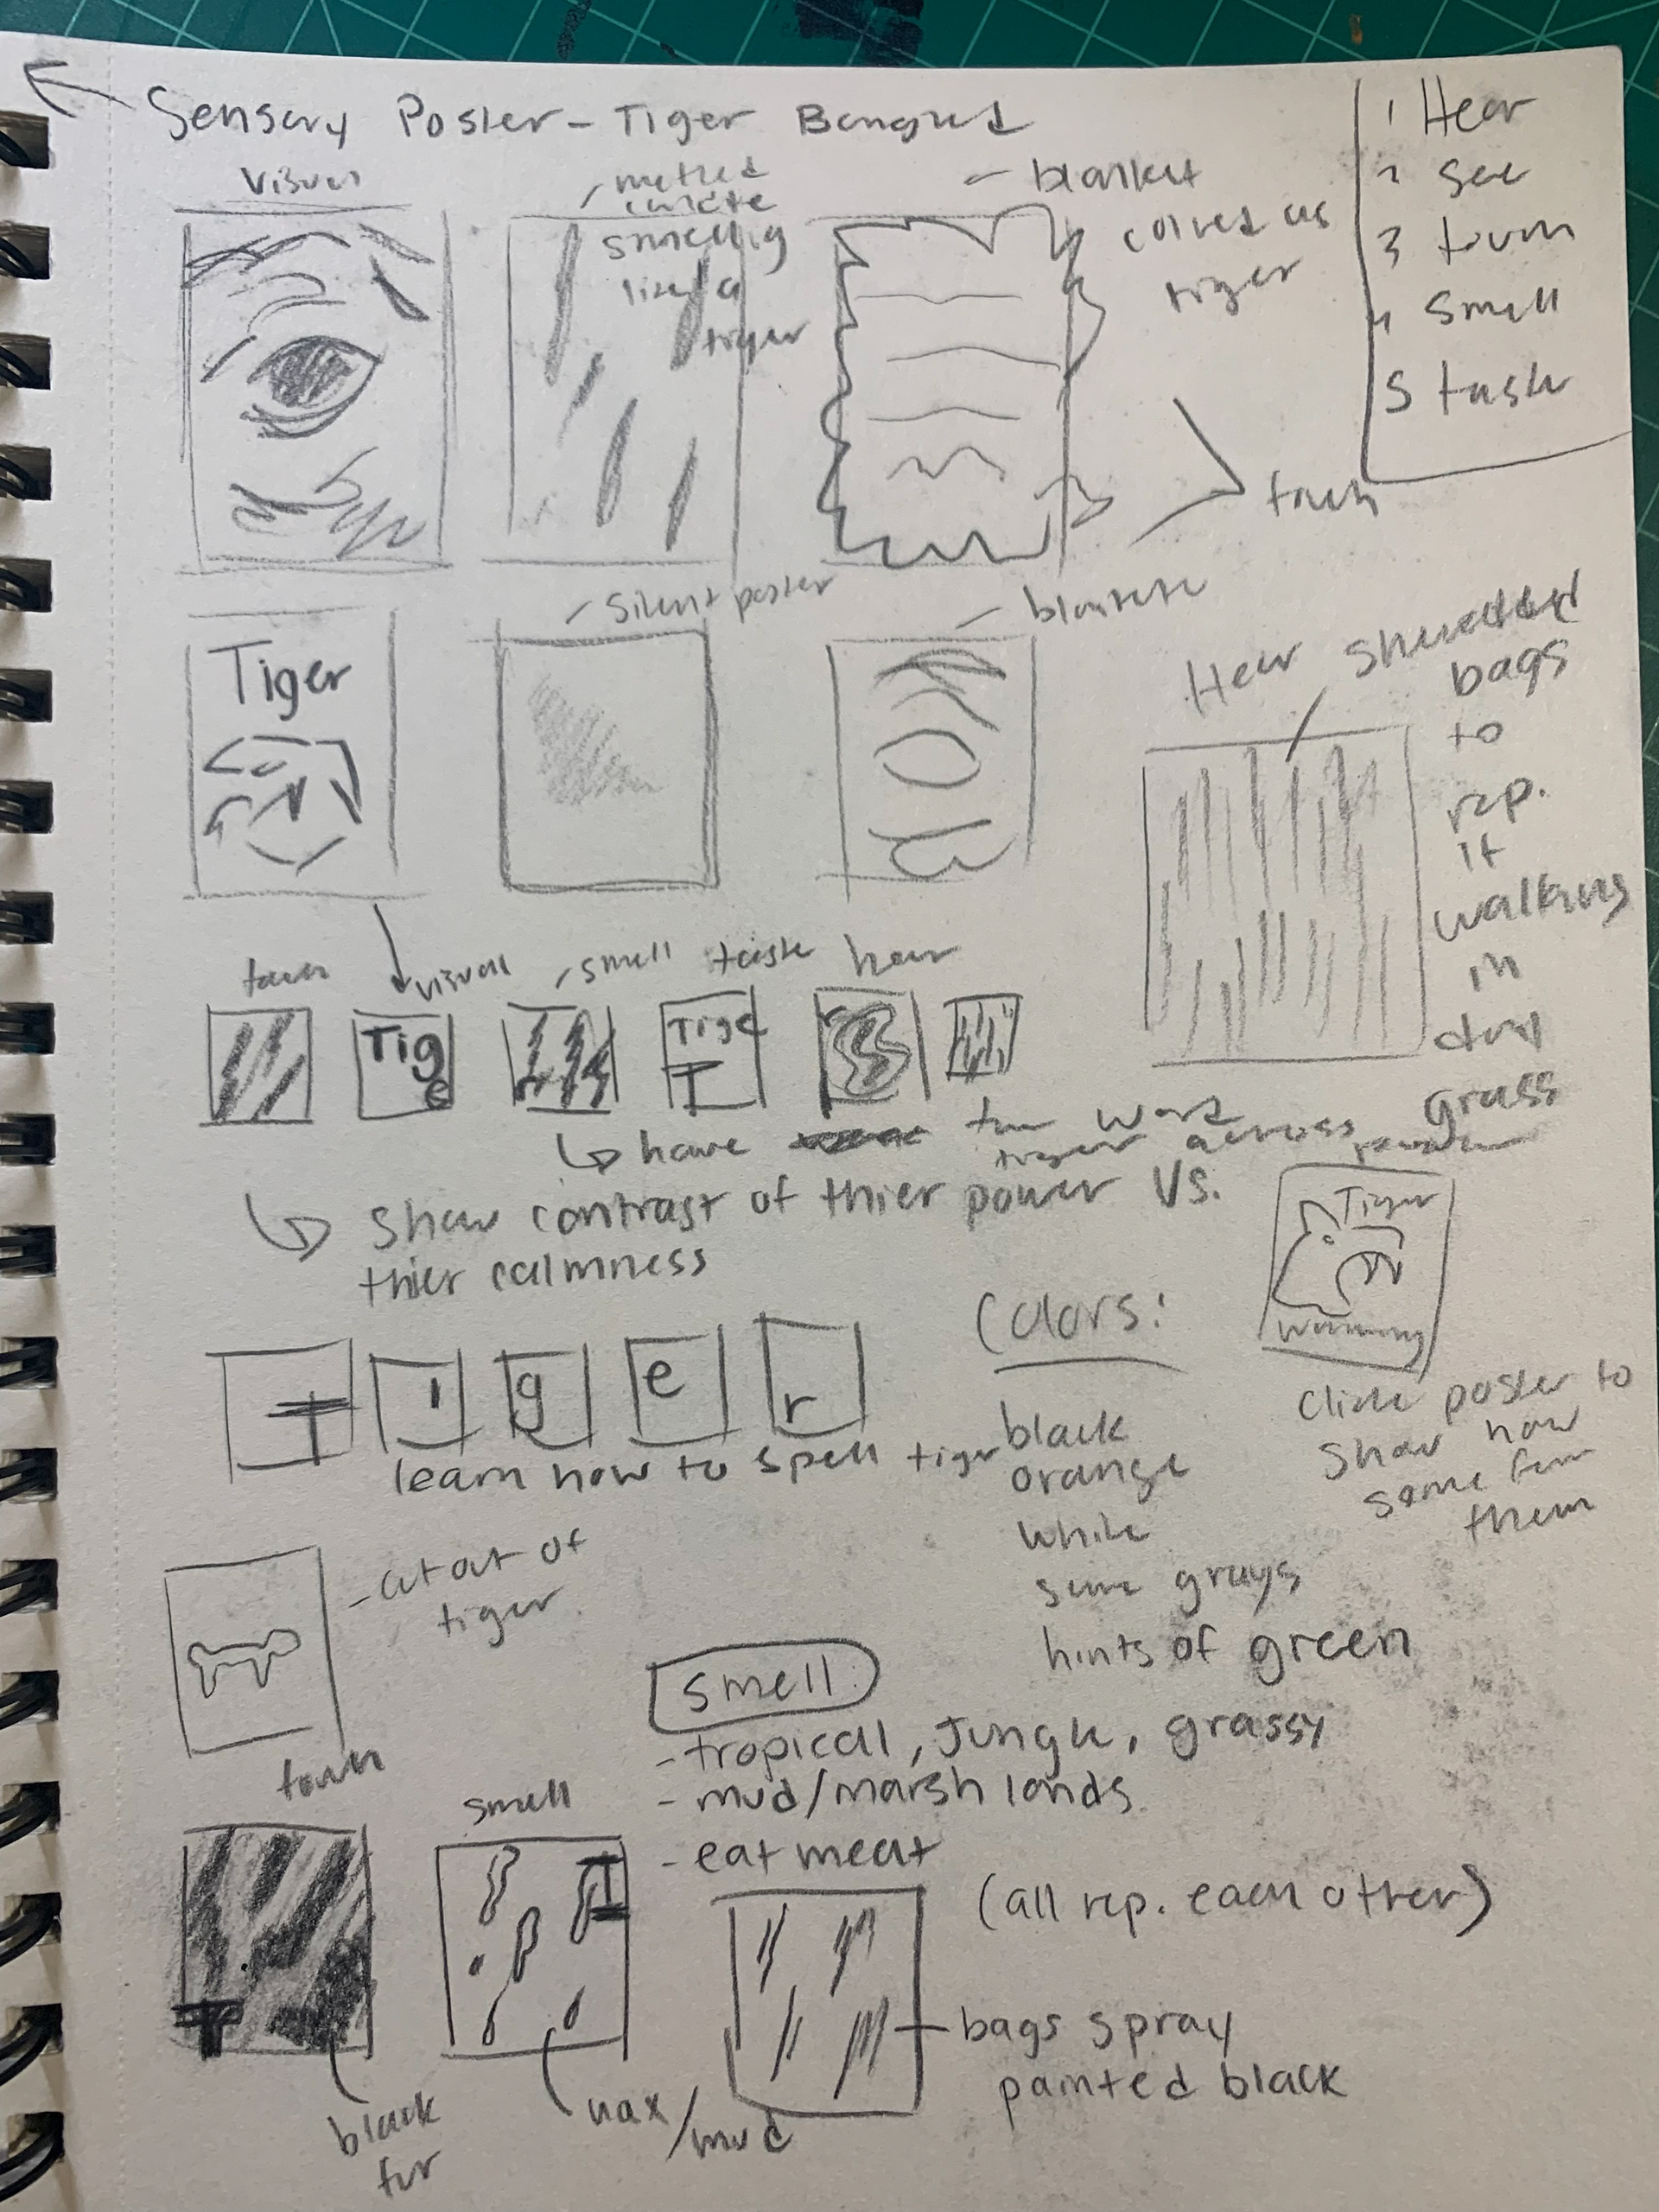 Sensory Poster - Tiger
1 Hear
2 see
3 touch
4 smell
5 taste
visual
- melted candle
smelling
like a
tiger
- blanket
colored as
tiger
touch
- Silent poster
Tiger
Hear shredded
bags
to
rep.
it
walking
in
dry
grass
touch
visual
- smell
taste
hear
Tige
Tige
T
have
word
tiger across
Show contrast of thier power Vs.
thier calmness
Tiger
Warning
T i g e r
learn how to spell tiger
Colors:
black
orange
white
some grays
hints of green
Cliche poster to
show how
some fear
them
- cut out of
tiger
touch
smell:
- tropical, Jungle, grassy
- mud/marsh lands
- eat meat
smell
T
T
(all rep. each other)
bags spray
painted black
black
fur
wax/mud